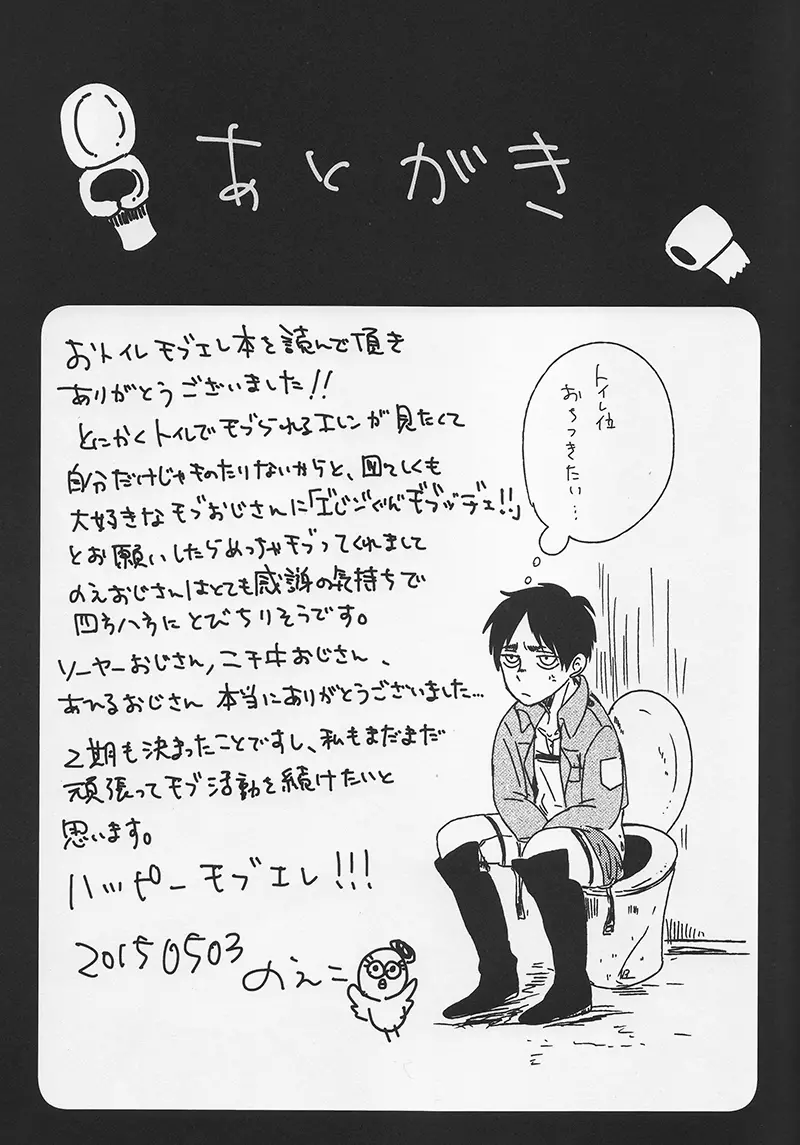 あとがき
おトイレモブエレ本を読んで頂き
ありがとうございました!!
とにかくトイレでモブられるエレンが見たくて
自分だけじゃものたりないからと、図々しくも
大好きなモブおじさんに「エレンくんモブッデェ!!」
とお願いしたらめっちゃモブってくれまして
のえおじさんはとても感謝の気持ちで
四方八方にとびちりそうです。
ソーヤーおじさん、ニキ中おじさん、
あひるおじさん 本当にありがとうございました…
2期も決まったことですし、私もまだまだ
頑張ってモブ活動を続けたいと
思います。
ハッピーモブエレ!!!
20150503
のえこ
トイレ位
おちつきたい…